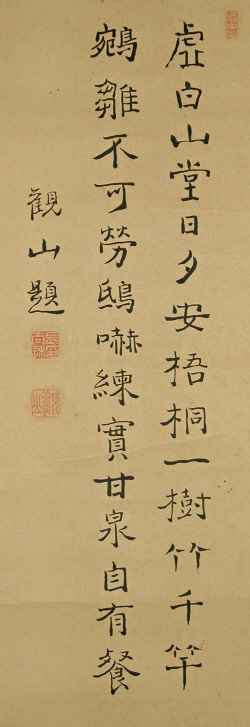 虚白山堂日夕安梧桐一樹竹千竿
鵷雛不可勞鴟嚇練實甘泉自有餐
觀山題